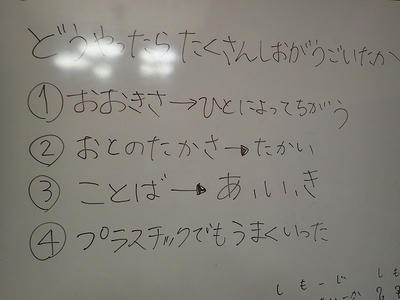 どうやったらたくさんしおがうごいたか
① おおきさ→ひとによってちがう
② おとのたかさ→たかい
③ ことば→あ,い,い,き
④ プラスチックでもうまくいった
しもーじ しも